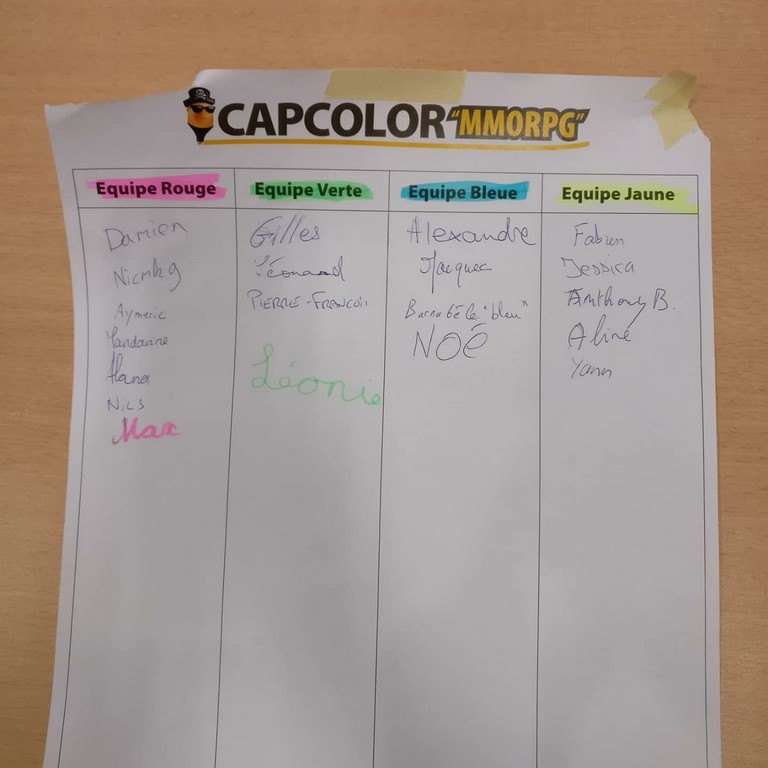 CAPCOLOR "MMORPG"
Equipe Rouge
Damien
Aymeric
Mandarine
Alana
NILS
Max
Equipe Verte
Gilles
Léonard
PIERRE-FRANCOIS
Léonie
Equipe Bleue
Alexandre
Jacques
Barnabé le "bleu"
NOÉ
Equipe Jaune
Fabien
Jessica
Anthony B.
Aline
Yann